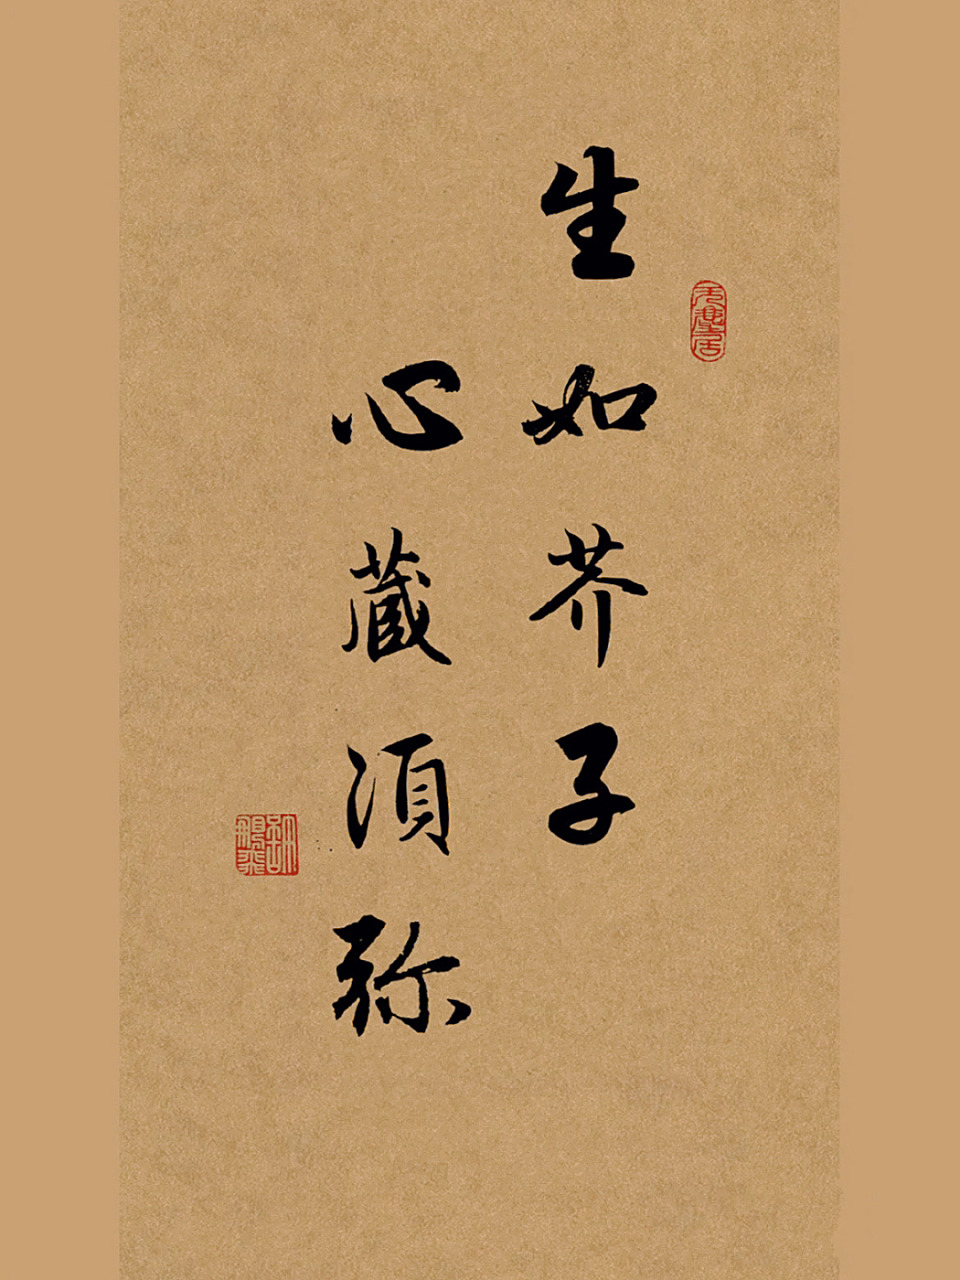 生如芥子
心藏须弥